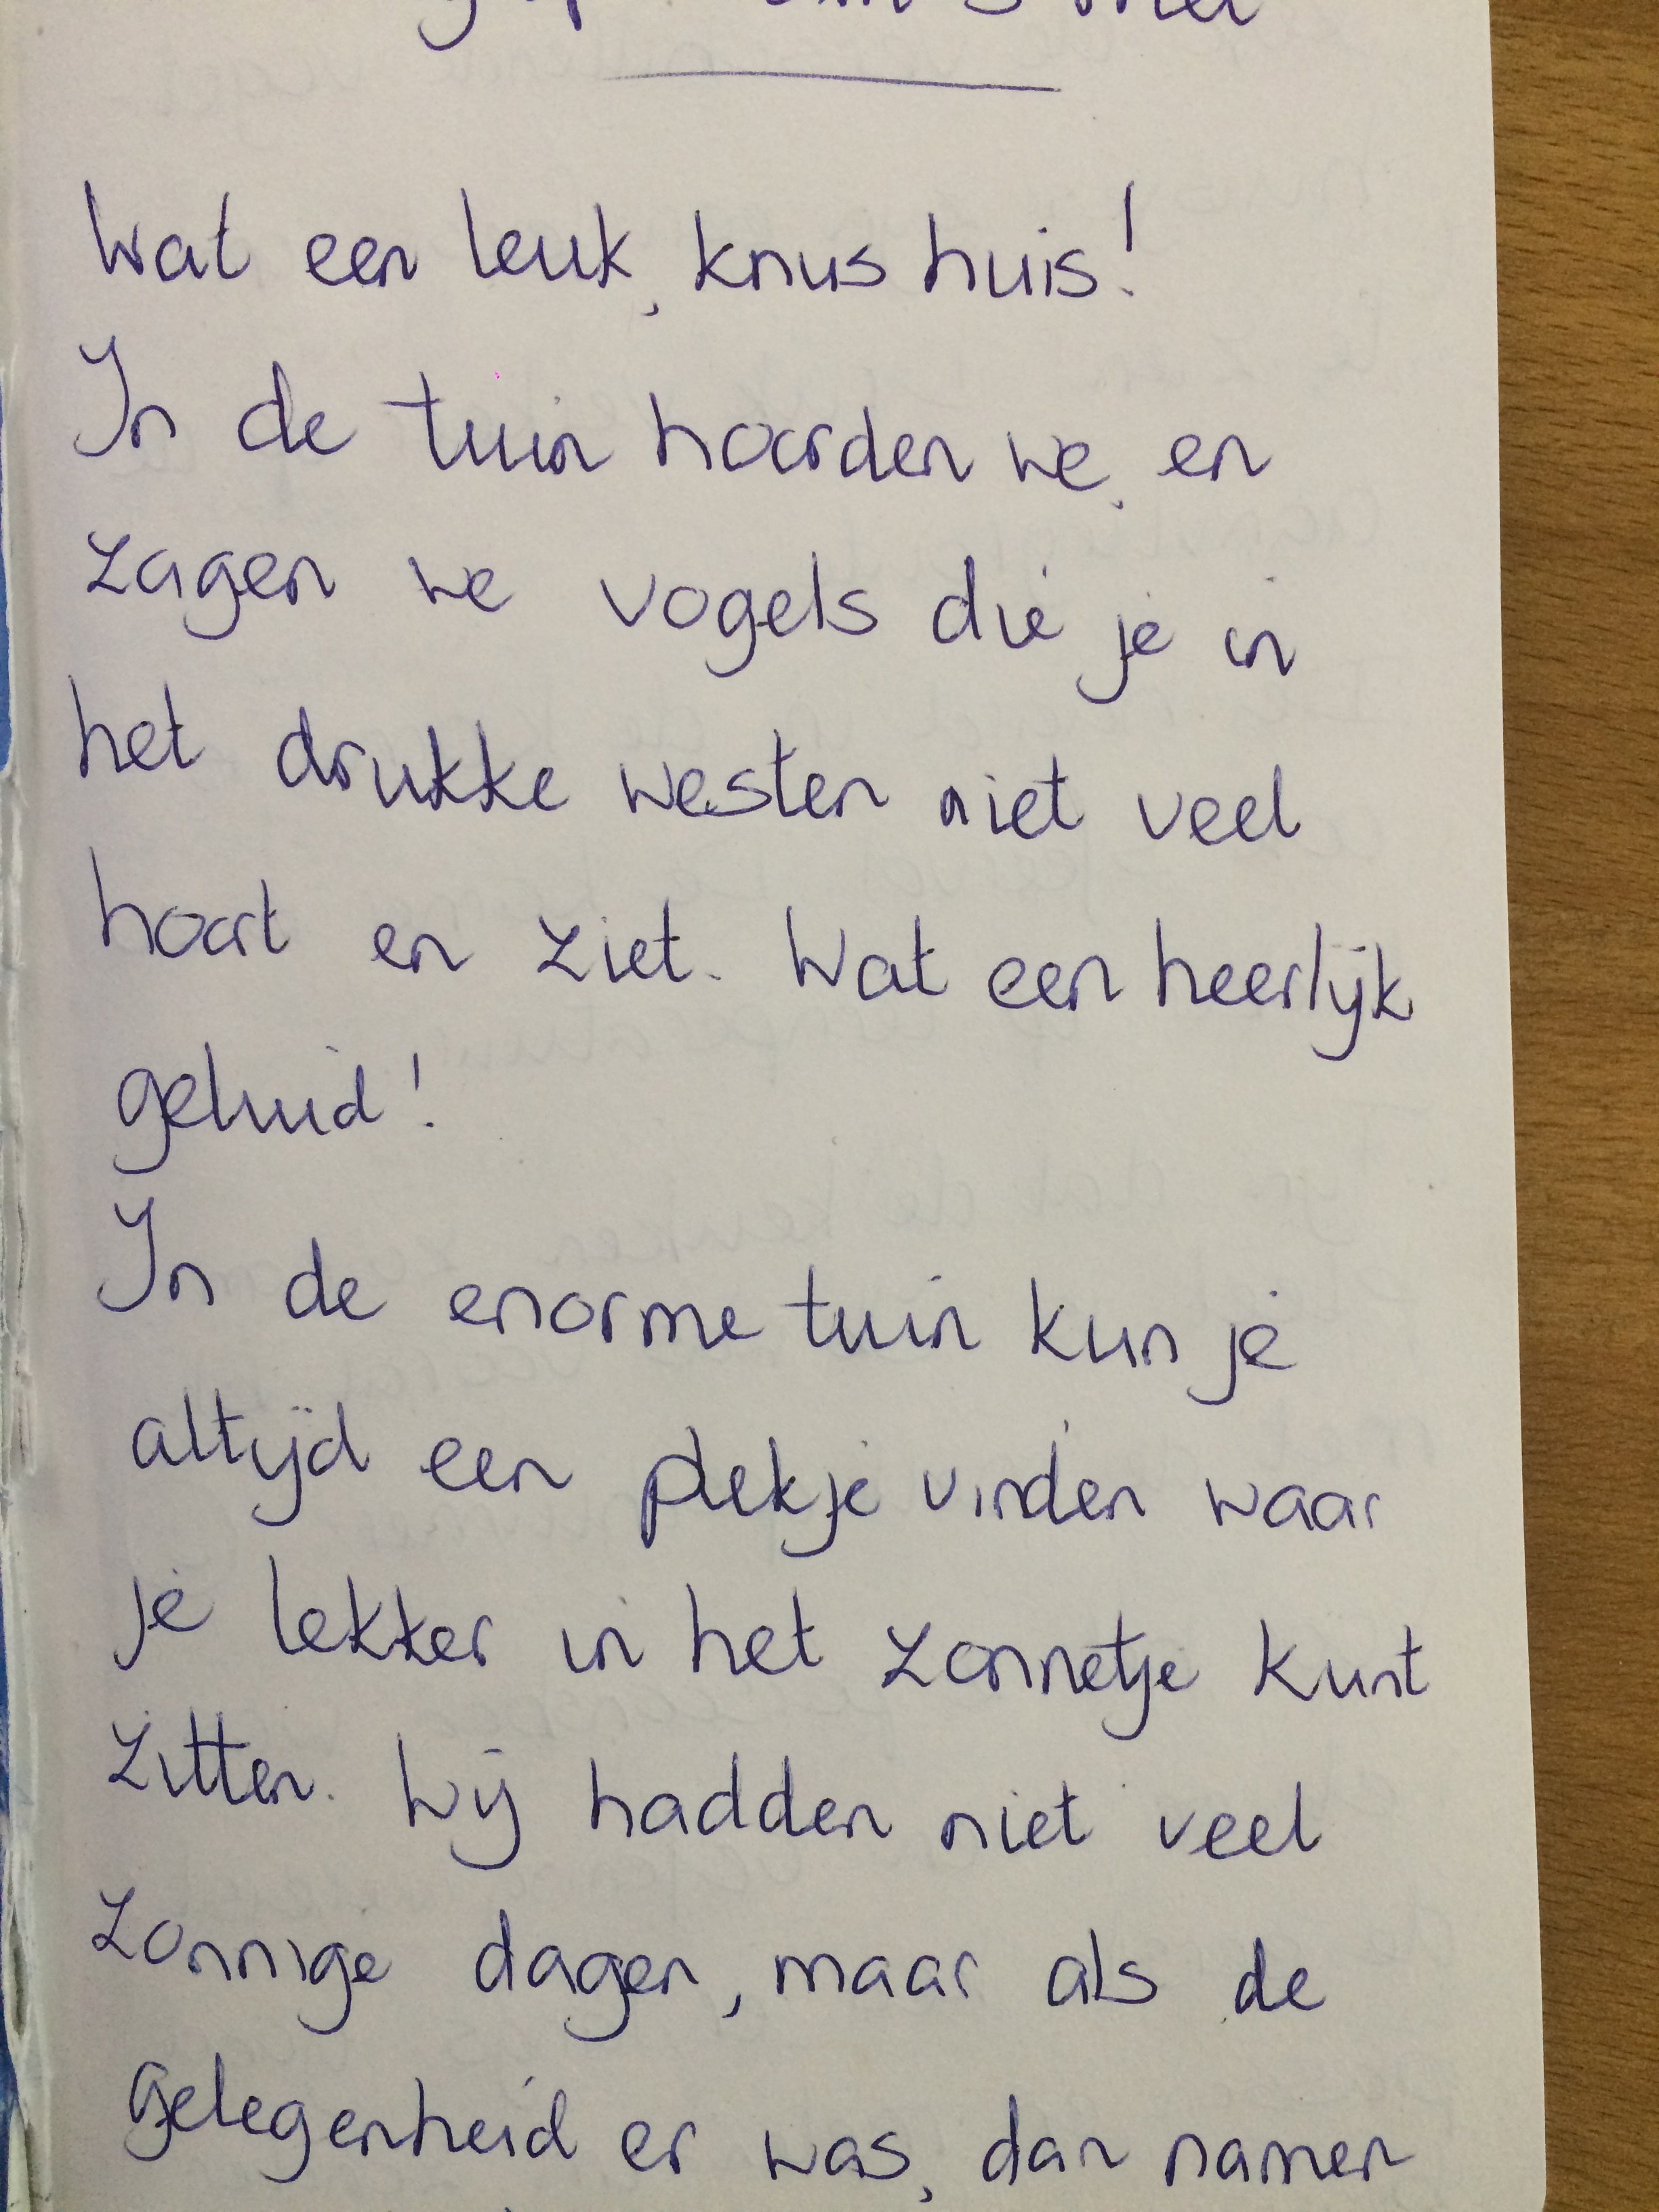 Wat een leuk, knus huis!
In de tuin hoorden we, en
zagen we vogels die je in
het drukke westen niet veel
hoort en ziet. Wat een heerlijk
geluid!
In de enorme tuin kun je
altijd een plekje vinden waar
je lekker in het zonnetje kunt
zitten. Wij hadden niet veel
zonnige dagen, maar als de
gelegenheid er was, dan namen